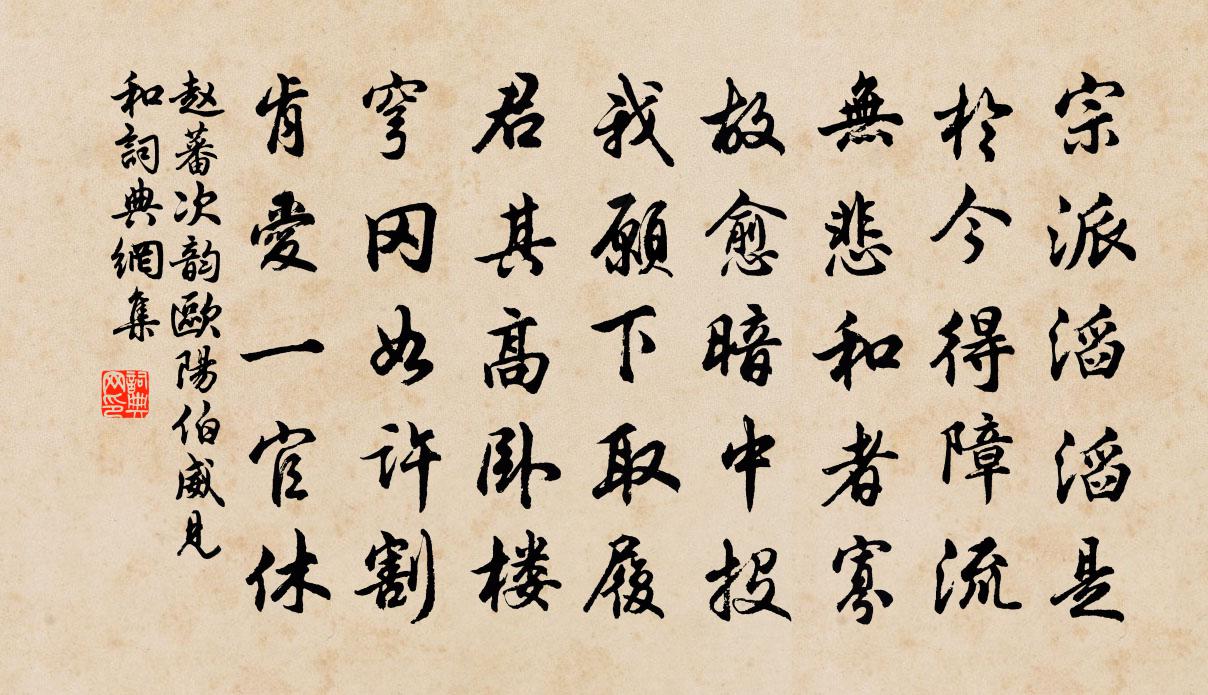 宗派滔滔是
於今得障流
無悲和者寡
故愈暗中投
我願下取履
君其高卧楼
穹冈如许割
肯愛一官休
赵蕃次韵歐陽伯威見
和詞典網集
詞典
网印